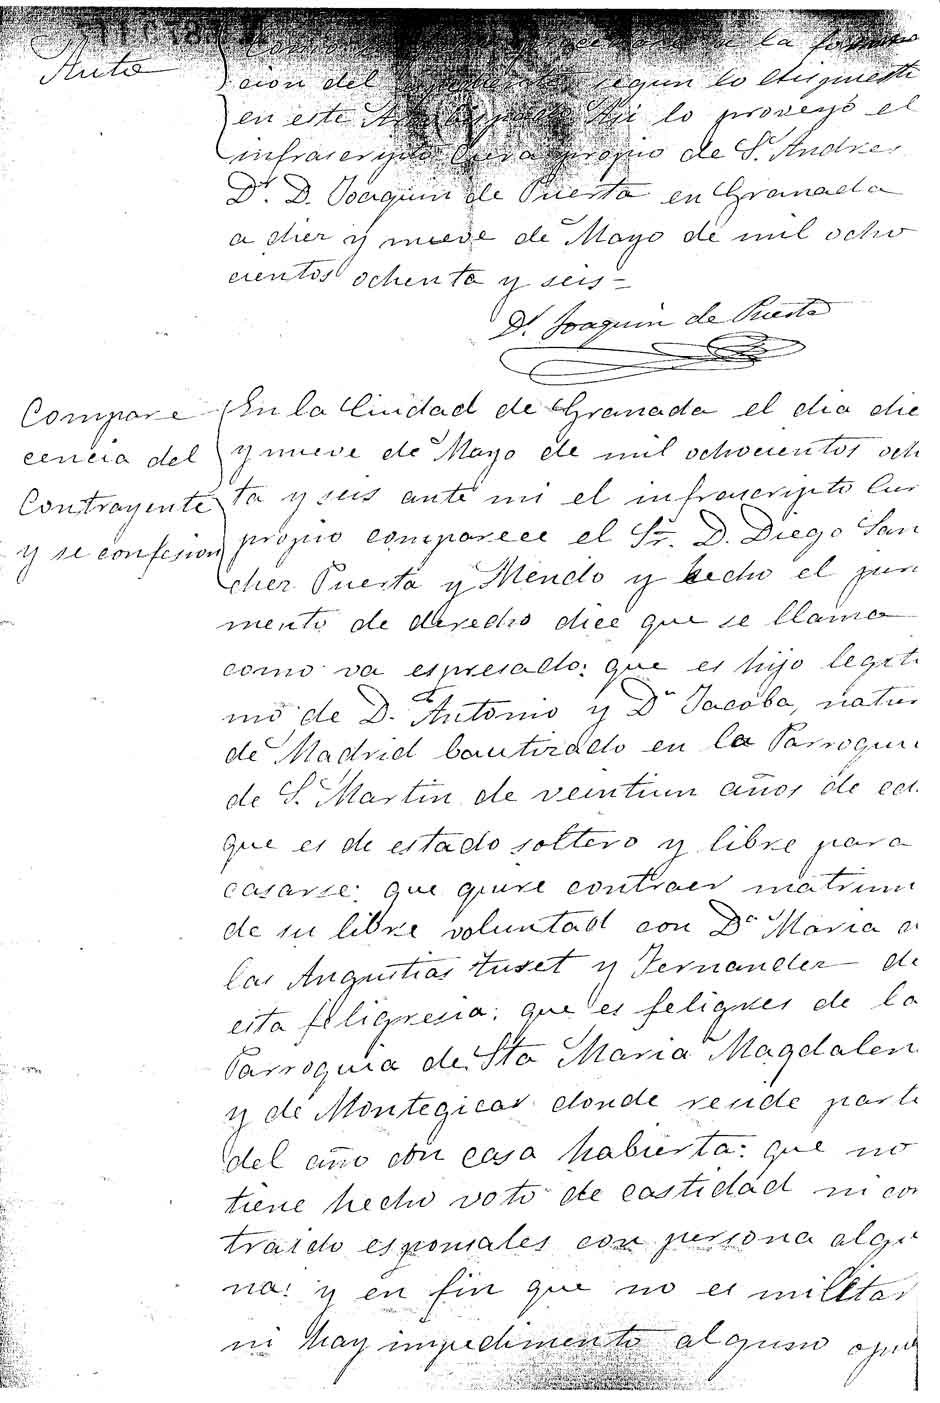 Auto
a la forma
cion del expediente segun lo dispuesto
en este Arzobispado Asi lo proveyó el
infrascripto Cura propio de S. Andres
Dr. D. Joaquin de Puerta en Granada
a diez y nueve de Mayo de mil ocho
cientos ochenta y seis=
Dr. Joaquin de Puerta
Compare
cencia del
Contrayente
y se confesion
En la Ciudad de Granada el dia die
y nueve de Mayo de mil ochocientos och
ta y seis ante mi el infrascripto Cur
propio comparece el Sr. D. Diego San
chez Puerta y Mendo y hecho el jura
mento de derecho dice que se llama
como va espresado: que es hijo legiti
mo de D. Antonio y Dª Jacoba, natur
de Madrid bautizado en la Parroqui
de S. Martin de veintiun años de ed
que es de estado soltero y libre para
casarse: que quire contraer matrim
de su libre voluntad con Dª Maria d
las Angustias Tuset y Fernandez de
esta feligresia: que es feligres de la
Parroquia de Sta Maria Magdalen
y de Montegicar donde reside parte
del año con casa habierta: que no
tiene hecho voto de castidad ni con
traido esponsales con persona algu
na: y en fin que no es militar
ni hay impedimento alguno